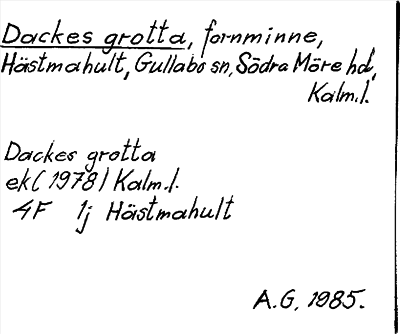 Dackes grotta, fornminne,
Hästmahult, Gullabo sn, Södra Möre hd,
Kalm.l.
Dackes grotta
ek (1978) Kalm.l.
4F 1j Hästmahult
A.G. 1985.